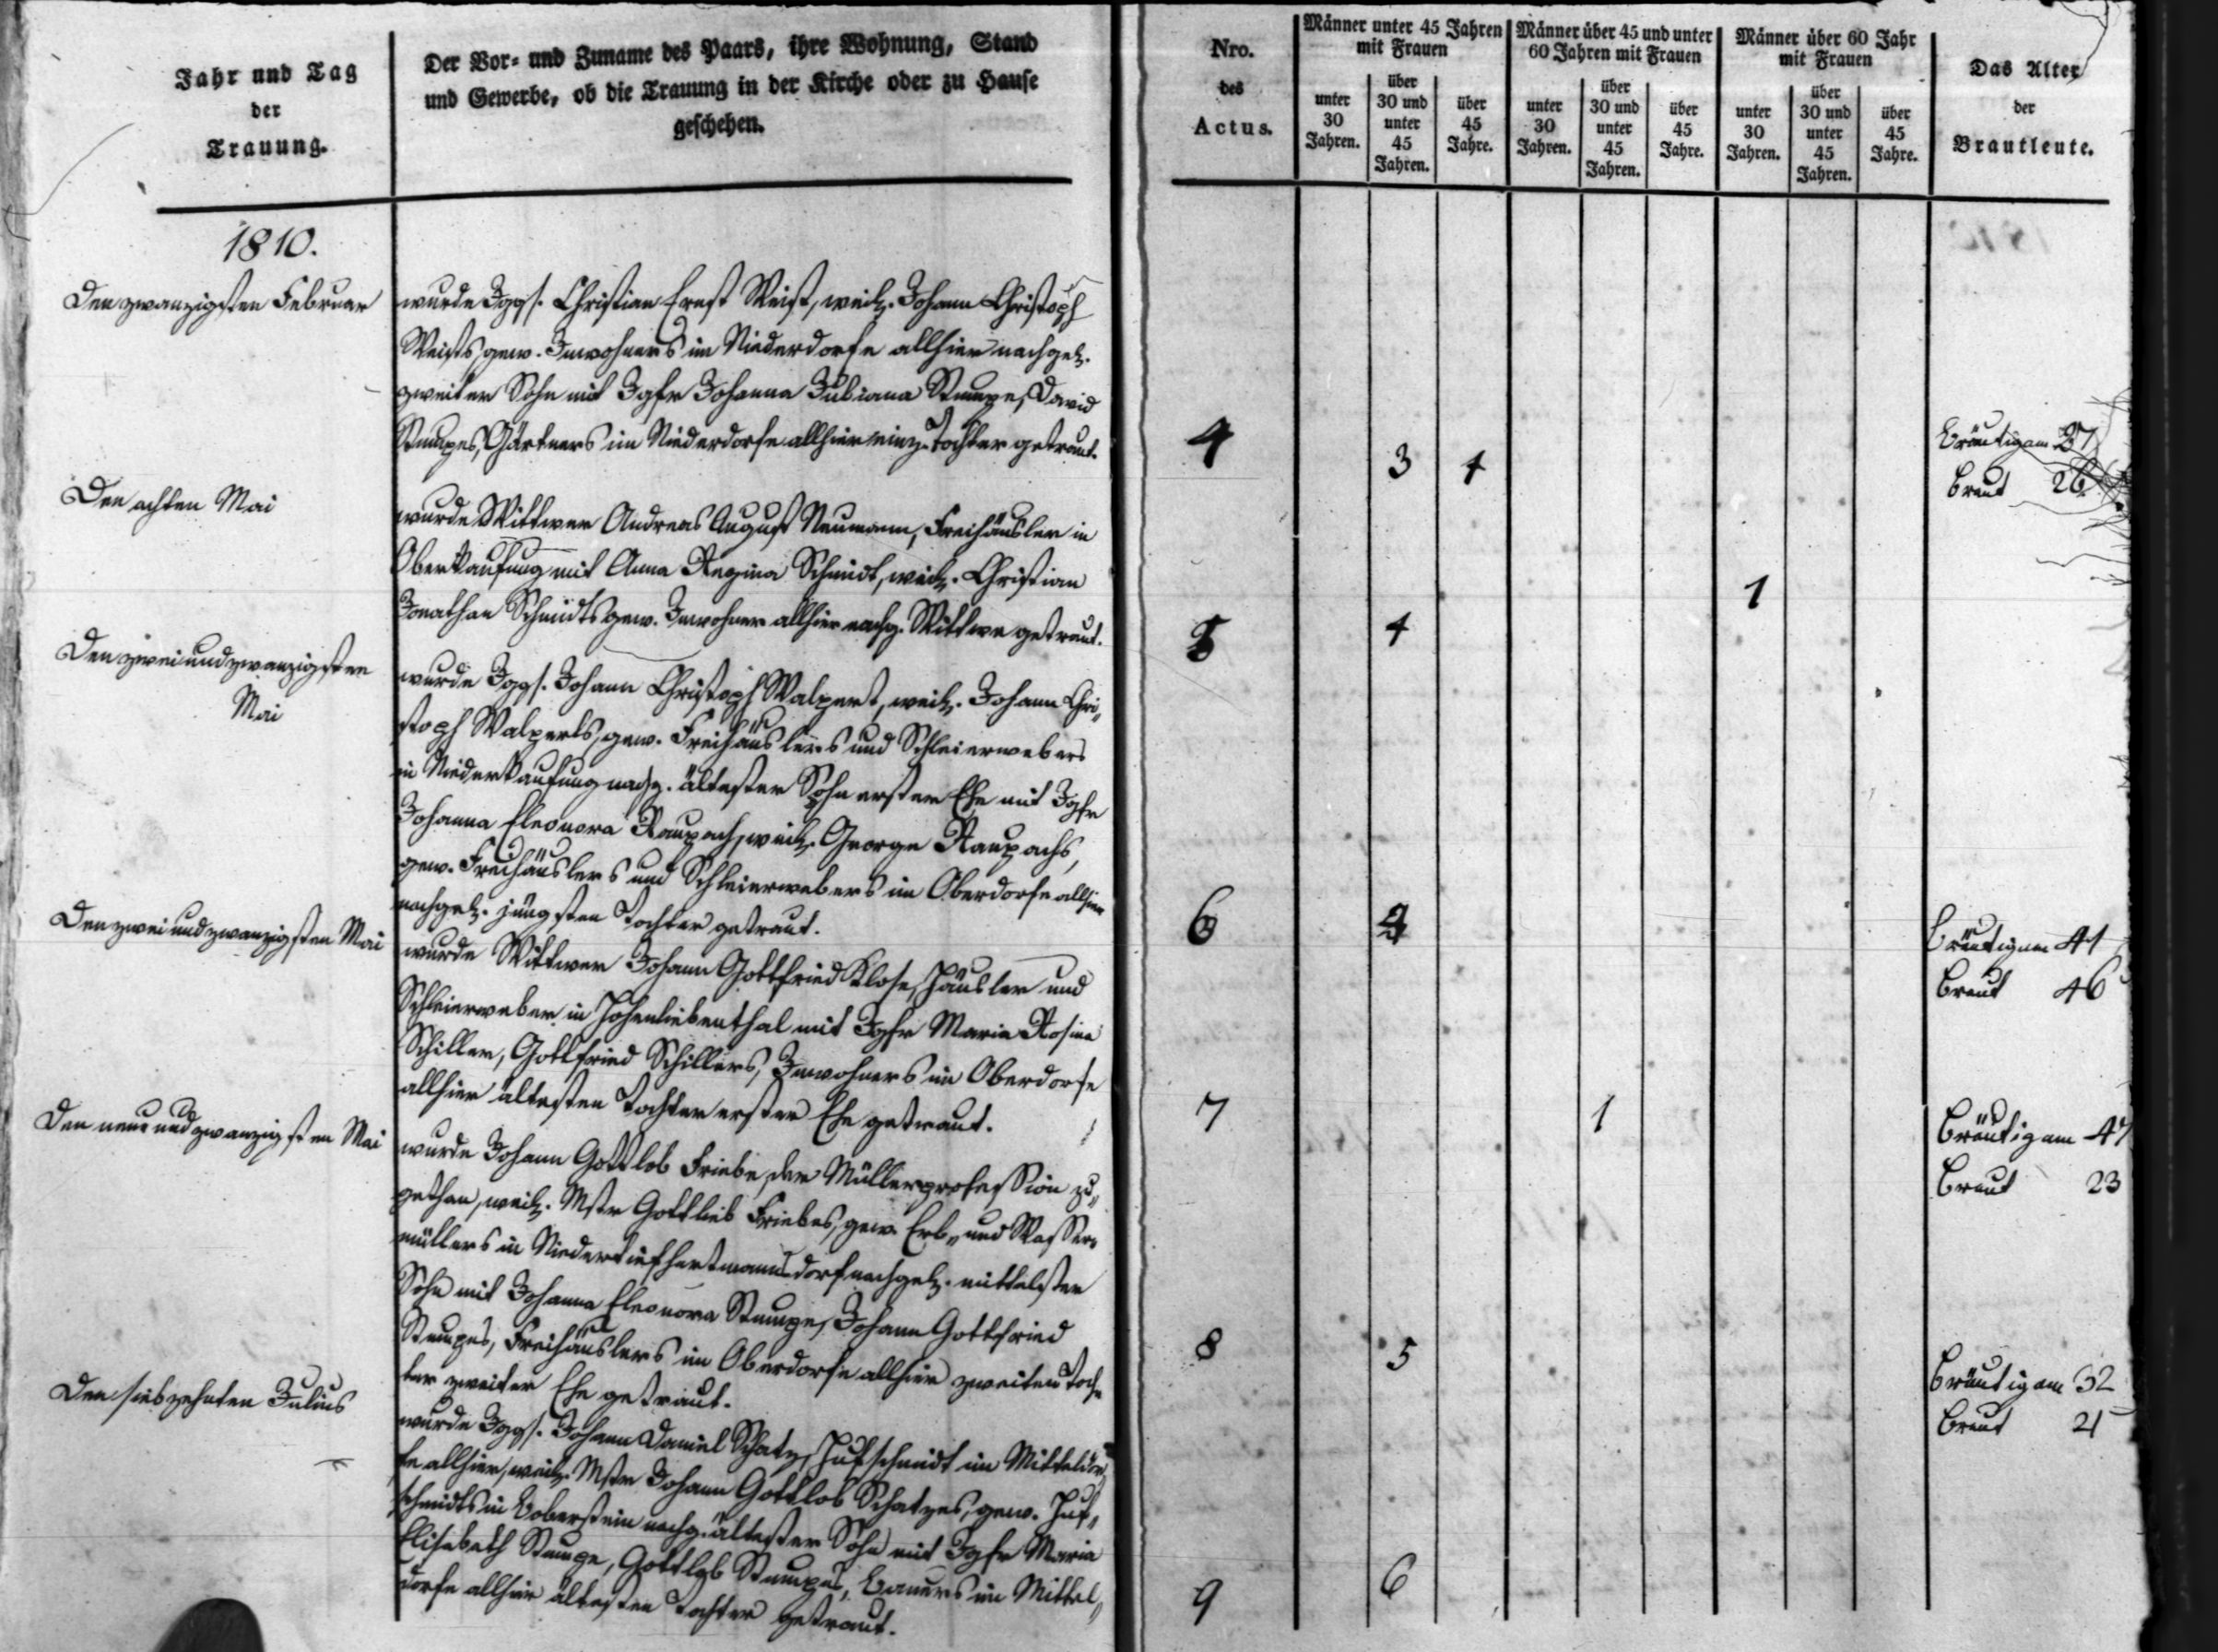 Jahr und Tag
der
Trauung.
Der Vor- und Zuname des Paars, ihre Wohnung, Stand
und Gewerbe, ob die Trauung in der Kirche oder zu Hause
geschehen.
1810.
Den zwanzigsten Februar
wurde Jggs. Christian Ernst Weist, weil. Johann Christoph
Weists, gew. Inwohners im Niederdorfe allhier nachgel.
zweiter Sohn mit Jgfr Johanna Juliana Stumpe, David
Stumpes, Gärtners im Niederdorfe allhier einz. Tochter getraut.
Den achten Mai
wurde Wittwer Andreas August Neumann, Freihäusler in
Oberkaufung mit Anna Regina Schmidt, weil. Christian
Jonathan Schmidts gew. Inwohner allhier nachg. Wittwe getraut.
Den zweiundzwanzigsten
Mai
wurde Jggs. Johann Christoph Walpert, weil. Johann Chri-
stoph Walperts, gew. Freihäuslers und Schleierwebers
in Niederkaufung nachg. ältester Sohn erster Ehe mit Jgfr
Johanna Eleonora Raupach, weil. George Raupachs,
gew. Freihäuslers und Schleierwebers im Oberdorfe allhier
nachgel. jüngsten Tochter getraut.
Den zweiundzwanzigsten Mai
wurde Wittwer Johann Gottfried Klose, Häusler und
Schleierweber in Hohenliebenthal mit Jgfr Maria Rosina
Schiller, Gottfried Schillers, Inwohners im Oberdorfe
allhier ältesten Tochter erster Ehe getraut.
Den neunundzwanzigsten Mai
wurde Johann Gottlob Friebe, der Müllerprofession zu-
gethan, weil. Mstr Gottlieb Friebes, gew. Erb- und Wasser-
müllers in Niedertiefhartmannsdorf nachgel. mittelster
Sohn mit Johanna Eleonora Stumpe, Johann Gottfried
Stumpes, Freihäuslers im Oberdorfe allhier zweiten Toch-
ter zweiter Ehe getraut.
Den siebzehnten Julius
wurde Jggs. Johann Daniel Schatz, Hufschmidt im Mitteldor-
fe allhier, weil. Mstr Johann Gottlob Schatzes, gew. Huf-
schmidts in Boberstein nachg. ältester Sohn mit Jgfr Maria
Elisabeth Stumpe, Gottlob Stumpes, Bauers im Mittel-
dorfe allhier ältesten Tochter getraut.
Nro.
des
Actus.
Männer unter 45 Jahren
mit Frauen
unter
30
Jahren.
über
30 und
unter
45
Jahren.
über
45
Jahre.
Männer über 45 und unter
60 Jahren mit Frauen
unter
30
Jahren.
über
30 und
unter
45
Jahren.
über
45
Jahre.
Männer über 60 Jahr
mit Frauen
unter
30
Jahren.
über
30 und
unter
45
Jahren.
über
45
Jahre.
Das Alter
der
Brautleute.
4 3 1
Bräutigam 27
Braut 26
5 4 1
6 4
Bräutigam 41
Braut 46
7 1
Bräutigam 47
Braut 23
8 5
Bräutigam 32
Braut 21
9 6